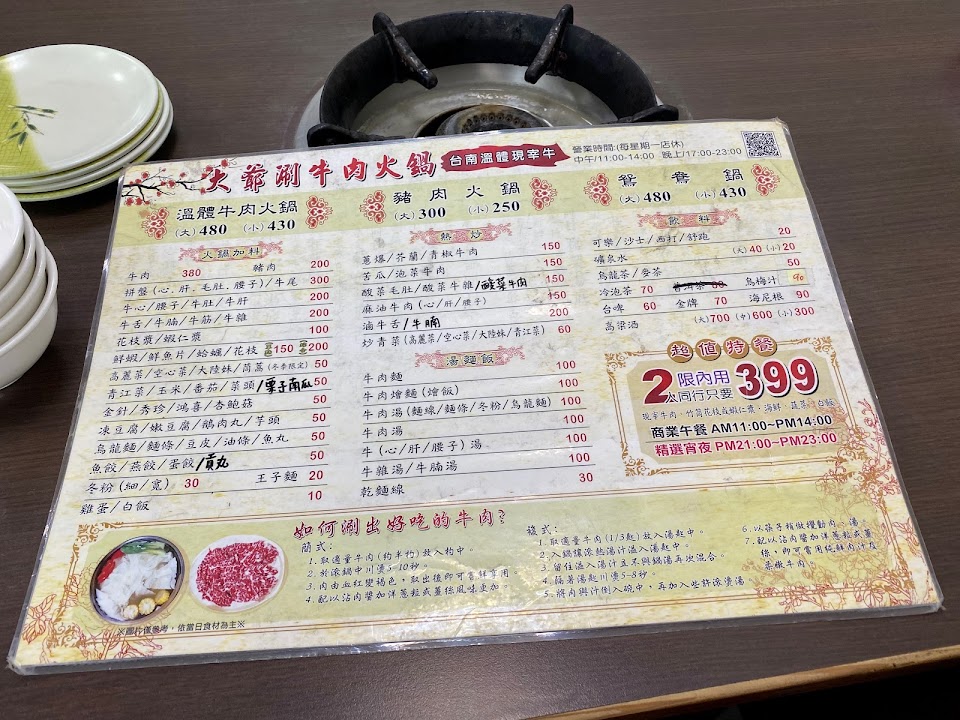 大爺涮牛肉火鍋 台南溫體現宰牛
營業時間:(每星期一店休)
中午/11:00-14:00 晚上/17:00-23:00
溫體牛肉火鍋
(大) 480 (小) 430
豬肉火鍋
(大) 300 (小) 250
鴛鴦鍋
(大) 480 (小) 430
火鍋加料
牛肉 380 豬肉 200
拼盤(心.肝.毛肚.腰子)/牛尾 300
牛心/腰子/牛肚/牛肝 200
牛舌/牛腩/牛筋/牛雜 200
花枝漿/蝦仁漿 100
鮮蝦/鮮魚片/蛤蠣/花枝 150 200
高麗菜/空心菜/大陸妹/茼蒿(冬季限定) 50
青江菜/玉米/番茄/菜頭/栗子南瓜 50
金針/秀珍/鴻喜/杏鮑菇 50
凍豆腐/嫩豆腐/鵝肉丸/芋頭 50
烏龍麵/麵條/豆皮/油條/魚丸 50
魚餃/燕餃/蛋餃/貢丸 50
冬粉(細/寬) 30 王子麵 20
雞蛋/白飯 10
熱炒
蔥爆/芥蘭/青椒牛肉 150
苦瓜/泡菜牛肉 150
酸菜毛肚/酸菜牛雜/酸菜牛肉 150
麻油牛肉(心/肝/腰子) 150
滷牛舌/牛腩 200
炒青菜(高麗菜/空心菜/大陸妹/青江菜) 60
湯麵飯
牛肉麵 100
牛肉燴麵(燴飯) 100
牛肉湯(麵線/麵條/冬粉/烏龍麵) 100
牛肉湯 100
牛(心/肝/腰子)湯 100
牛雜湯/牛腩湯 100
乾麵線 30
飲料
可樂/沙士/西打/舒跑 20
礦泉水 (大) 40 (小) 20
烏龍茶/麥茶 50
冷泡茶 70 普洱茶 60 烏梅汁 90
台啤 60 金牌 70 海尼根 90
高梁酒 (大)700 (中)600 (小)300
超值特餐
2人 限內用 同行只要 399
現宰牛肉、竹筒花枝或蝦仁漿、海鮮、蔬菜、白飯
商業午餐 AM11:00~PM14:00
精選宵夜 PM21:00~PM23:00
如何涮出好吃的牛肉?
簡式:
1.取適量牛肉(約半杓)放入杓中。
2.於滾鍋中川燙5-10秒。
3.肉由血紅變褐色,取出後即可嘗鮮享用。
4.配以沾肉醬加洋蔥粒或薑絲風味更加。
複式:
1.取適量牛肉(1/3匙)放入湯匙中。
2.入鍋㩦滾熱湯汁溢入湯匙中。
3.留住溢入湯汁且不與鍋湯再次混合。
4.隔著湯匙川燙5-8秒。
5.將肉與汁倒入碗中,再加入些許滾燙湯。
6.以筷子稍做攪動肉、湯。
7.配以沾肉醬加洋蔥粒或薑
絲,即可當用純鮮肉汁及
柔嫩牛肉。
※圖片僅參考,依當日食材為主※